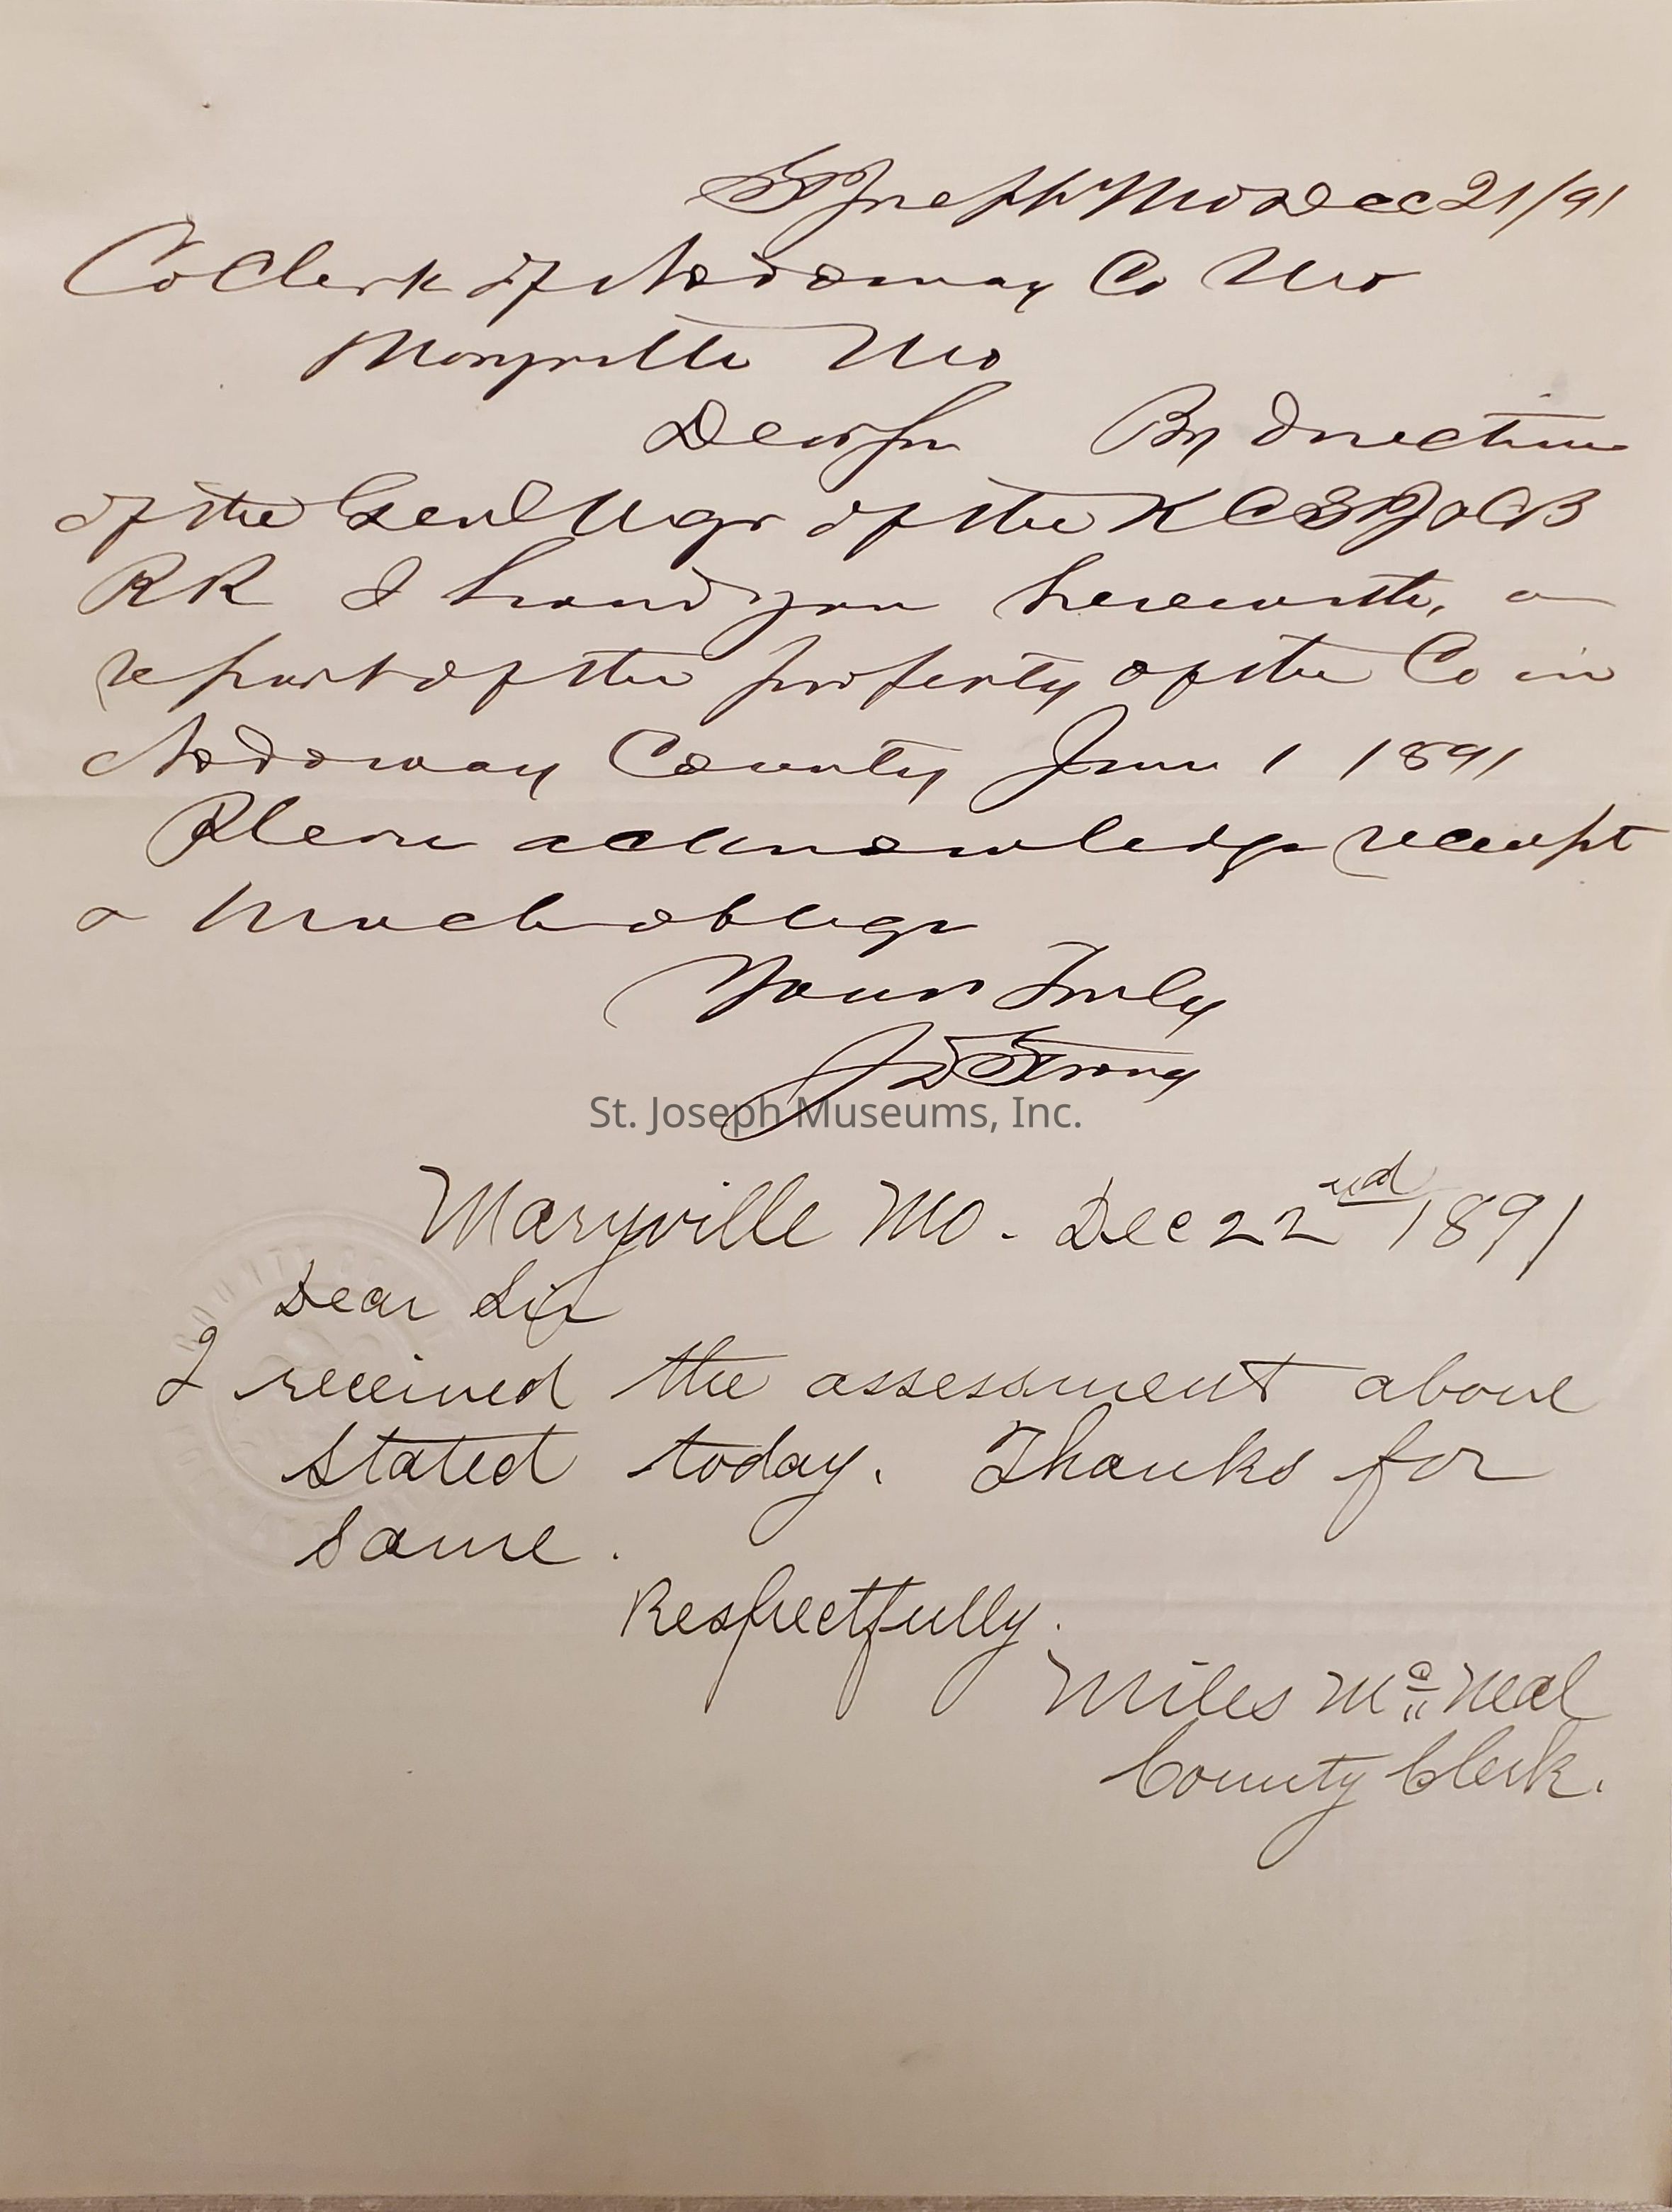 St Joseph Mo Dec 21/91
Co Clerk of Nodaway Co Mo
Maryville Mo
Dear Sir By direction
of the Genl Mgr of the K C St J & C B
R R I hand you herewith, a
report of the property of the Co in
Nodaway County June 1 1891
Please acknowledge receipt
& much oblige
Yours Truly
J D Strong
St. Joseph Museums, Inc.
Maryville Mo. Dec 22nd 1891
Dear Sir
I received the assessment above
stated today. Thanks for
same.
Respectfully.
Miles McNeal
County Clerk.